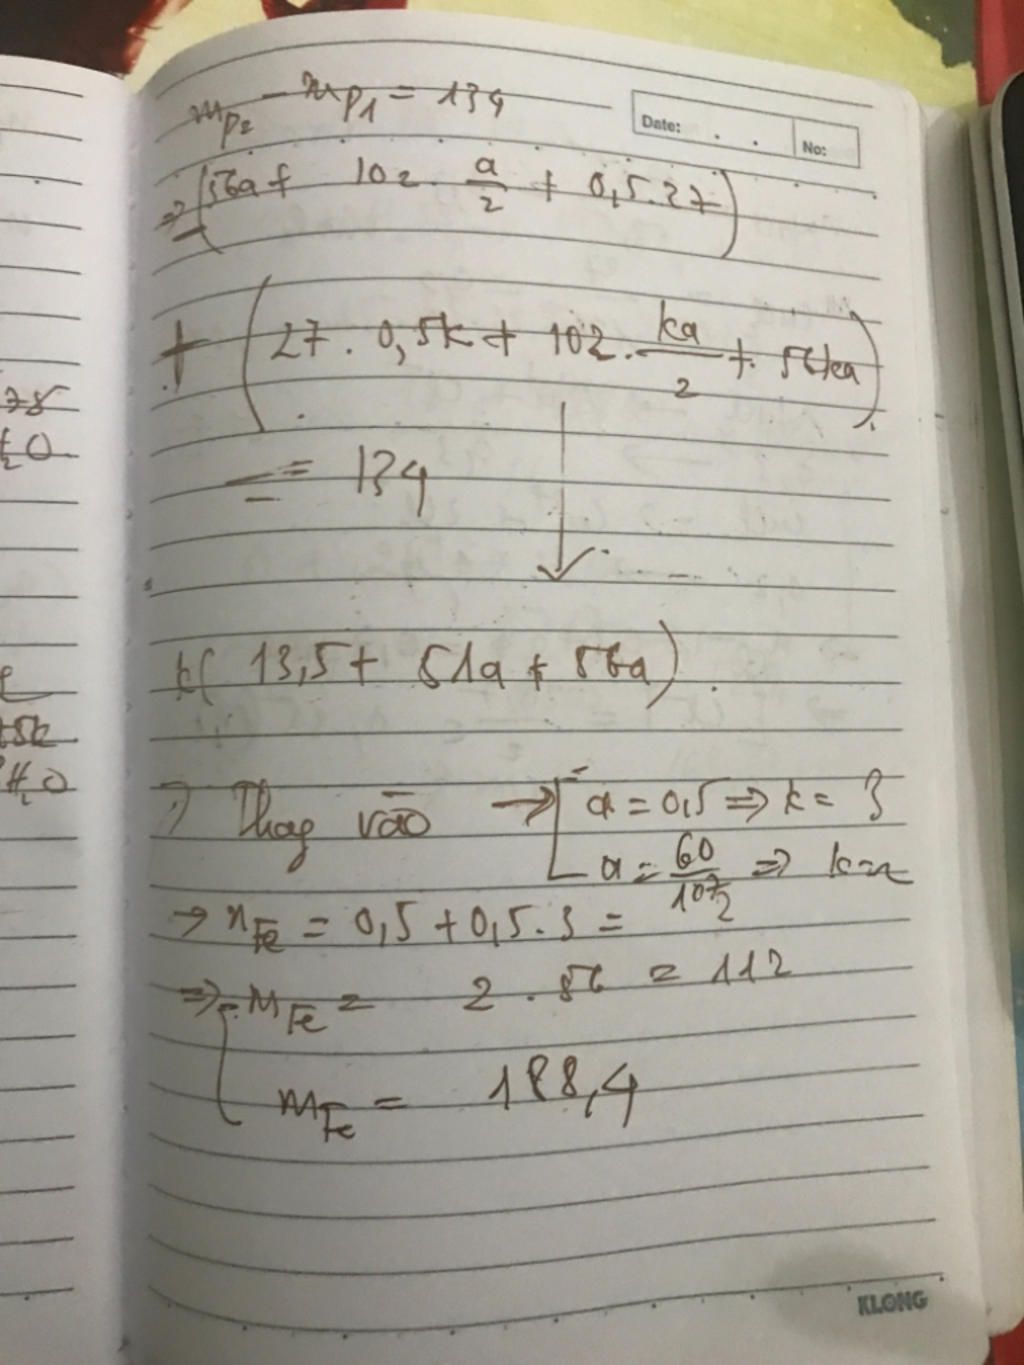 m_{P2} - m_{P1} = 134
Date: . . No:
=> -(56a + 102 . \frac{a}{2} + 0,5.27)
+ (27 . 0,5k + 102 . \frac{ka}{2} + 56ka)
= 134
k( 13,5 + 51a + 56a)
Thay vào → [ a = 0,5 => k = 3
a = \frac{60}{107} => k =
→ n_{Fe} = 0,5 + 0,5.3 =
=> m_{Fe} = 2 . 56 = 112
m_{Fe} = 188,4
75
H_2O
+5k
H_2O
KLONG